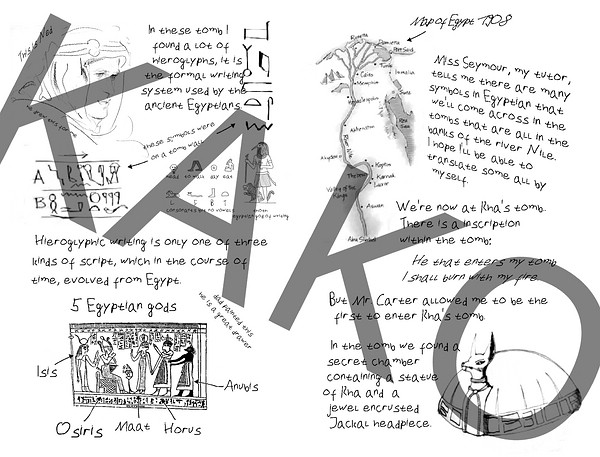 This is Ned
In these tomb I
found a lot of
hieroglyphs, it is
the formal writing
system used by the
ancient Egyptians
these symbols were
on a tomb wall
A
B
Hieroglyphic writing is only one of three
kinds of script, which in the course of
time, evolved from Egypt.
5 Egyptian gods
dad painted this
he is a great drawer
Isis
Anubis
Osiris
Maat
Horus
Map of Egypt 1908
Rosetta
Damietta
Port Said
Cairo
Memphis
Ismailia
Suez
Red
Sea
River Nile
Koptos
Karnak
Luxor
Valley of the
Kings
Aswan
Abu Simbel
Miss Seymour, my tutor,
tells me there are many
symbols in Egyptian that
we'll come across in the
tombs that are all in the
banks of the river Nile.
I hope I'll be able to
translate some all by
myself.
We're now at Rha's tomb.
There is a inscription
within the tomb:
He that enters my tomb
I shall burn with my fire.
But Mr. Carter allowed me to be the
first to enter Rha's tomb.
In the tomb we found a
secret chamber
containing a statue
of Rha and a
jewel encrusted
Jackal headpiece.
KAKO